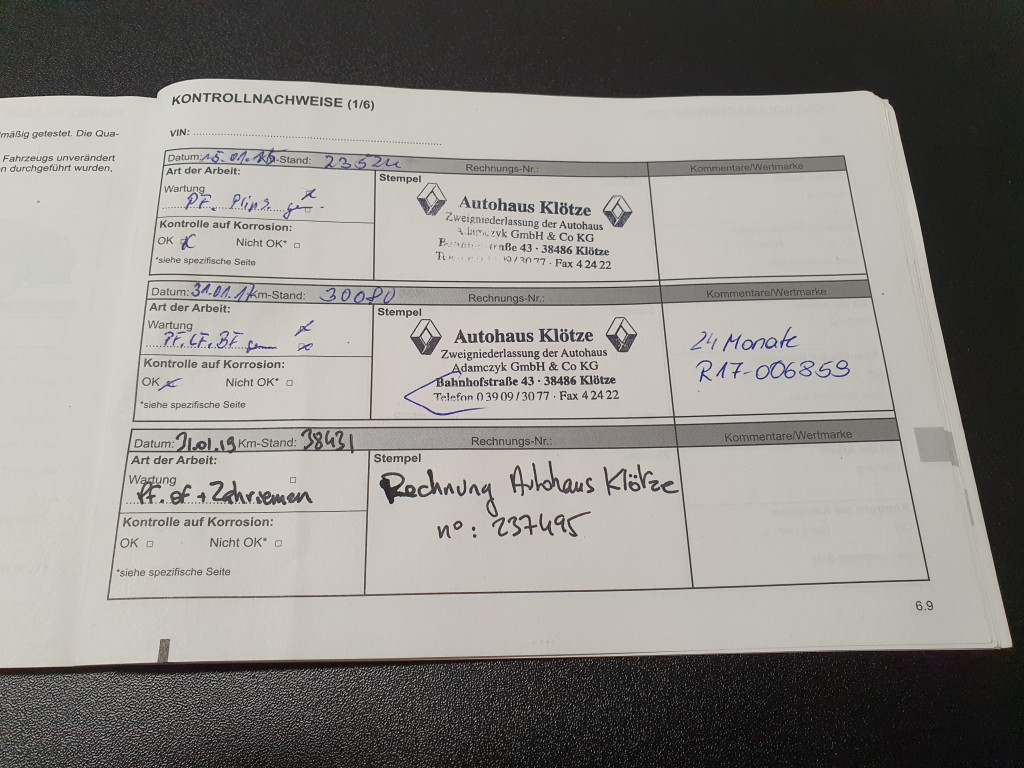 mäßig getestet. Die Qua-
Fahrzeugs unverändert
n durchgeführt wurden,
KONTROLLNACHWEISE (1/6)
VIN:
Datum: 15.01.15 Km-Stand: 23524 Rechnungs-Nr.: Kommentare/Wertmarke
Art der Arbeit:
Wartung
PF.
Kontrolle auf Korrosion:
OK Nicht OK* □
*siehe spezifische Seite
Stempel
Autohaus Klötze
Zweigniederlassung der Autohaus
Adamczyk GmbH & Co KG
Bahnhofstraße 43 · 38486 Klötze
09/3077 · Fax 4 24 22
Datum: 31.01.17 Km-Stand: 30080 Rechnungs-Nr.: Kommentare/Wertmarke
Art der Arbeit:
Wartung
PF. LF. BF
Kontrolle auf Korrosion:
OK Nicht OK* □
*siehe spezifische Seite
Stempel
Autohaus Klötze
Zweigniederlassung der Autohaus
Adamczyk GmbH & Co KG
Bahnhofstraße 43 · 38486 Klötze
Telefon 0 39 09 / 30 77 · Fax 4 24 22
24 Monate
R17-006859
Datum: 31.01.19 Km-Stand: 38431 Rechnungs-Nr.: Kommentare/Wertmarke
Art der Arbeit:
Wartung □
Pf. of + Zahnriemen
Kontrolle auf Korrosion:
OK □ Nicht OK* □
*siehe spezifische Seite
Stempel
Rechnung Autohaus Klötze
n°: 237495
6.9